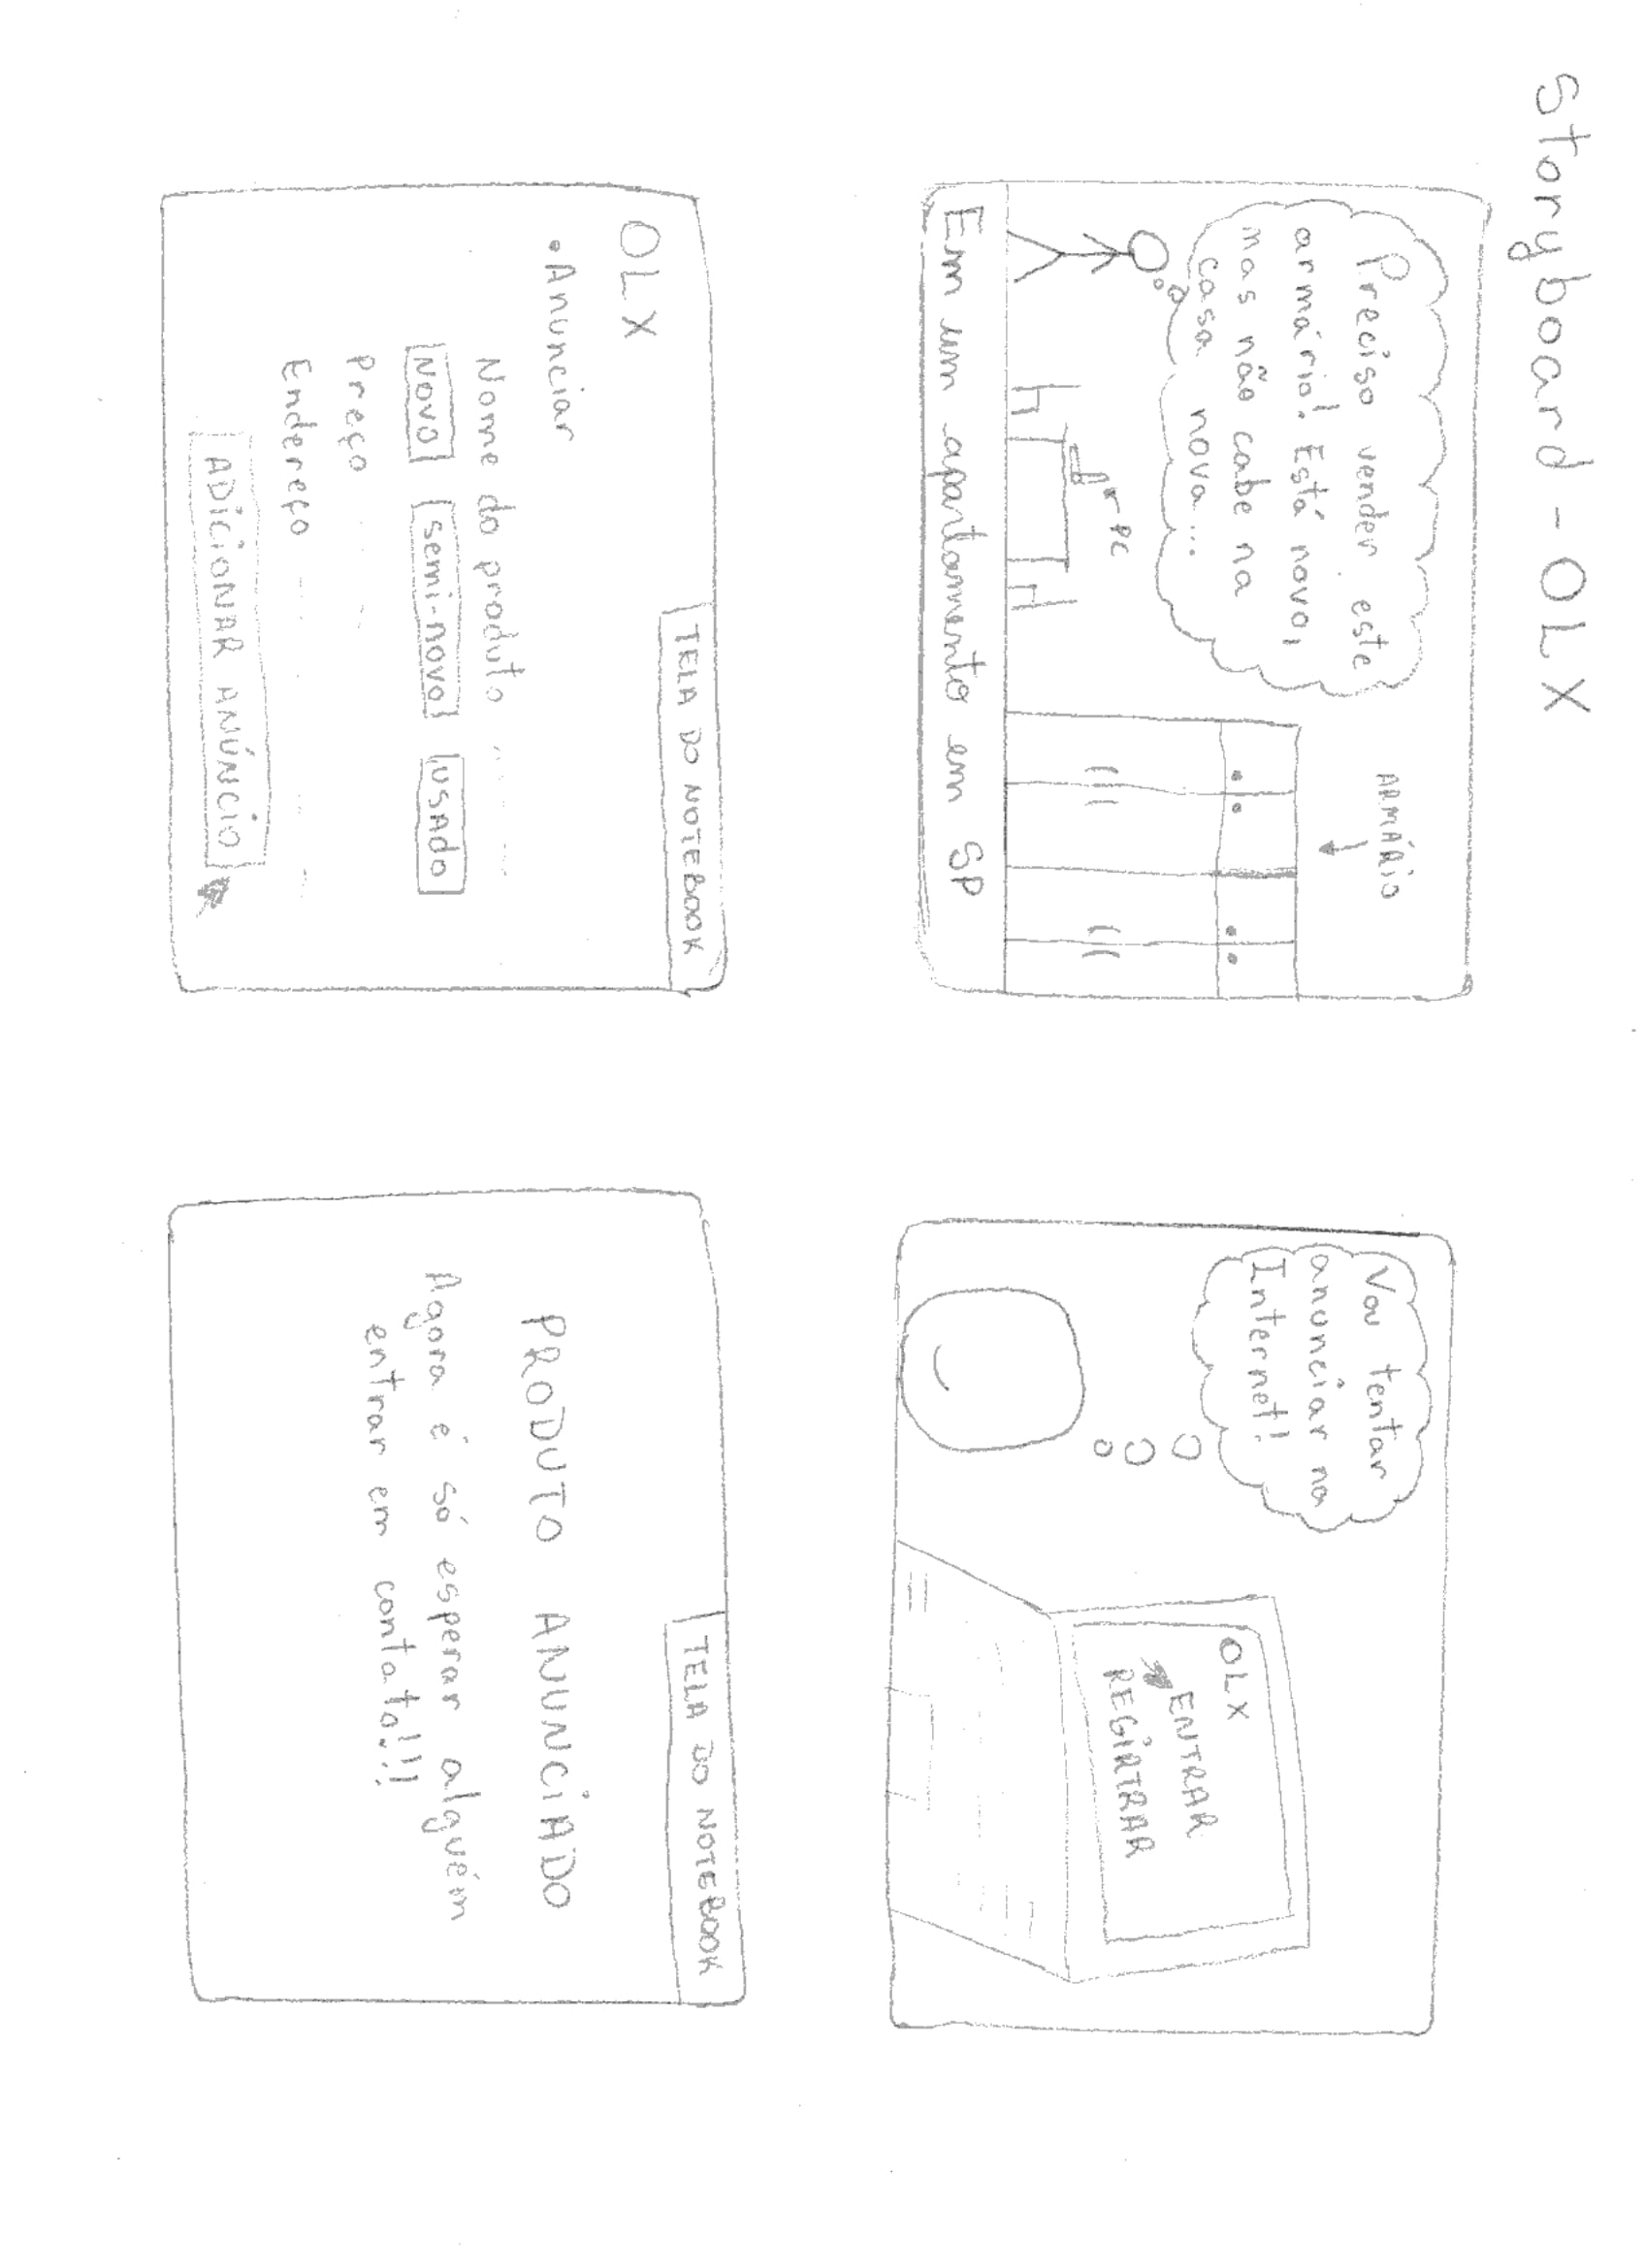 Storyboard - OLX
Preciso vender este
armário! Está novo,
mas não cabe na
casa nova...
ARMÁRIO
PC
Em um apartamento em SP
Vou tentar
anunciar na
Internet!
OLX
ENTRAR
REGISTRAR
TELA DO NOTEBOOK
OLX
• Anunciar
Nome do produto
Novo semi-novo usado
Preço
Endereço
ADICIONAR ANÚNCIO
TELA DO NOTEBOOK
PRODUTO ANUNCIADO
Agora é só esperar alguém
entrar em contato!!!